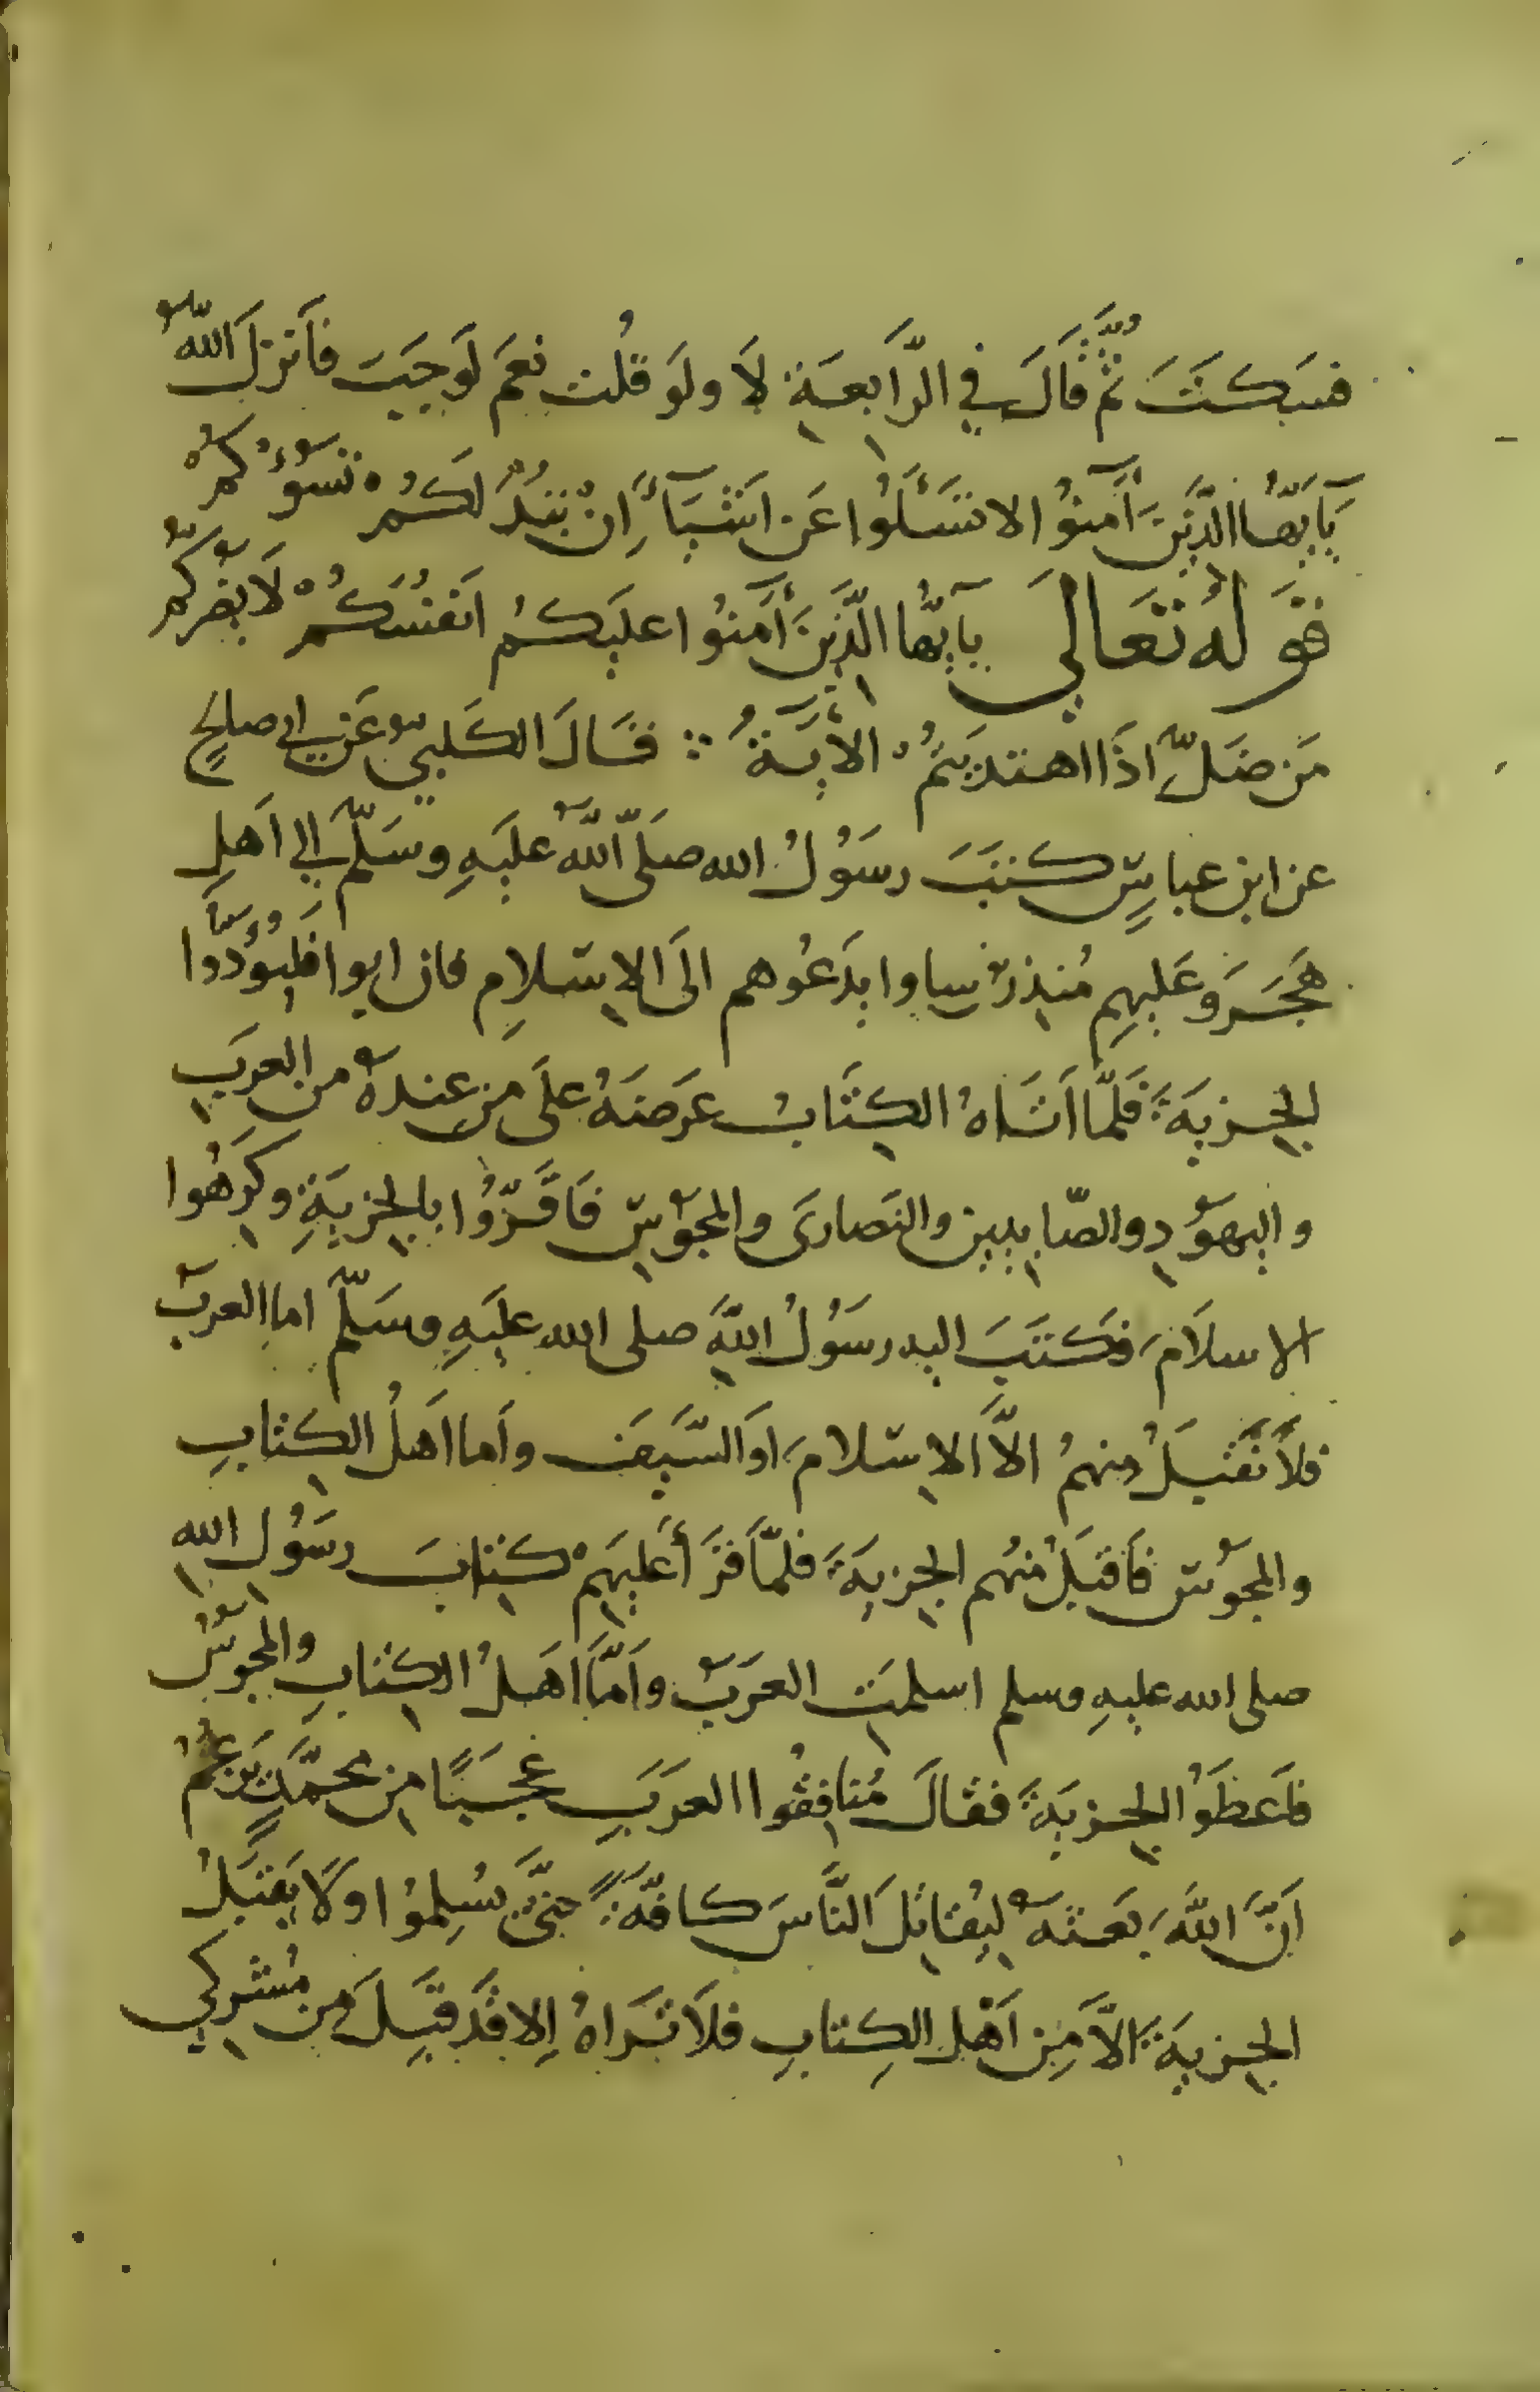 فسكتَ ثُمَّ قَالَ في الرَّابِعَةِ لَا ولَو قُلت نعَم لَوجبَت فَأنزلَ اللّهُ
يَآيُّها الذَّينَ آمنُوا لا تسَئلُوا عَن اشيَآءَ اِنْ تبدَ لَكُمْ تَسُؤكُمْ
قَولهُ تعَالي يآيُّها الَّذينَ آمنُوا عليَكُم انَفُسَكُمْ لَا يَضُرُّكُم
مَن ضَلَّ اذَا اهتدَيتُمْ الأيَةُ ∴ قَالَ الكَلبيُّ عَن ابي صالحٍ
عن ابن عباسٍ كتبَ رسَوُلُ الله صَلَّى اللّهُ عليَهِ وسَلَّم الي اَهلِ
هَجَرَ وعَليهِم مُنذر بن ساوا يدَعُوهم الَى الاِسلامِ فان ابوا فَليؤَدُّوا
الجِزيةَ فَلَمّا اتَاهُ الكِتَابُ عرَضَهُ علَى مَن عندهُ من العربِ
واليهوُدِ والصّابِيين والنَصارىَ والمجوُسِ فَاقَرّوُا بالجِزيَةِ وكَرِهُوا
الاسلاَمَ فكَتبَ اليه رسَوُلُ اللَّهِ صلى الله عليَهِ وسَلّم اما العربُ
فلاَ تَقَبَلْ منهمُ الاَّ الاِسلامَ اوَ السَّيَفَ وأما اَهلُ الكتابِ
والمجوُس فاَقبَلْ منهُم الجِزيَةَ فلمّاَ قَرَأَ عليَهِمْ كتِابَ رسَوُل اللهِ
صلى الله عليهِ وسلم اسلمَتِ العرَبُ وأمَّا اَهلُ الكتابِ والمجوسُ
فاَعَطَوُا الجِزيَةَ فقالَ مُنافِقُوا العرَبِ عجَبًا مِن محمَّدٍ يَزعُمُ
اَنَّ اللَّهَ بعَثهُ لِيُقاتِلَ النَّاسَ كافَّةً حتَّى يُسلِمُوا ولَا يَقبَلُ
الجِزيةَ اِلاَّ مِن اَهْلِ الكِتابِ فلاَ نَرَاهُ اِلا قَد قَبِلَ مِن مُشرِكي